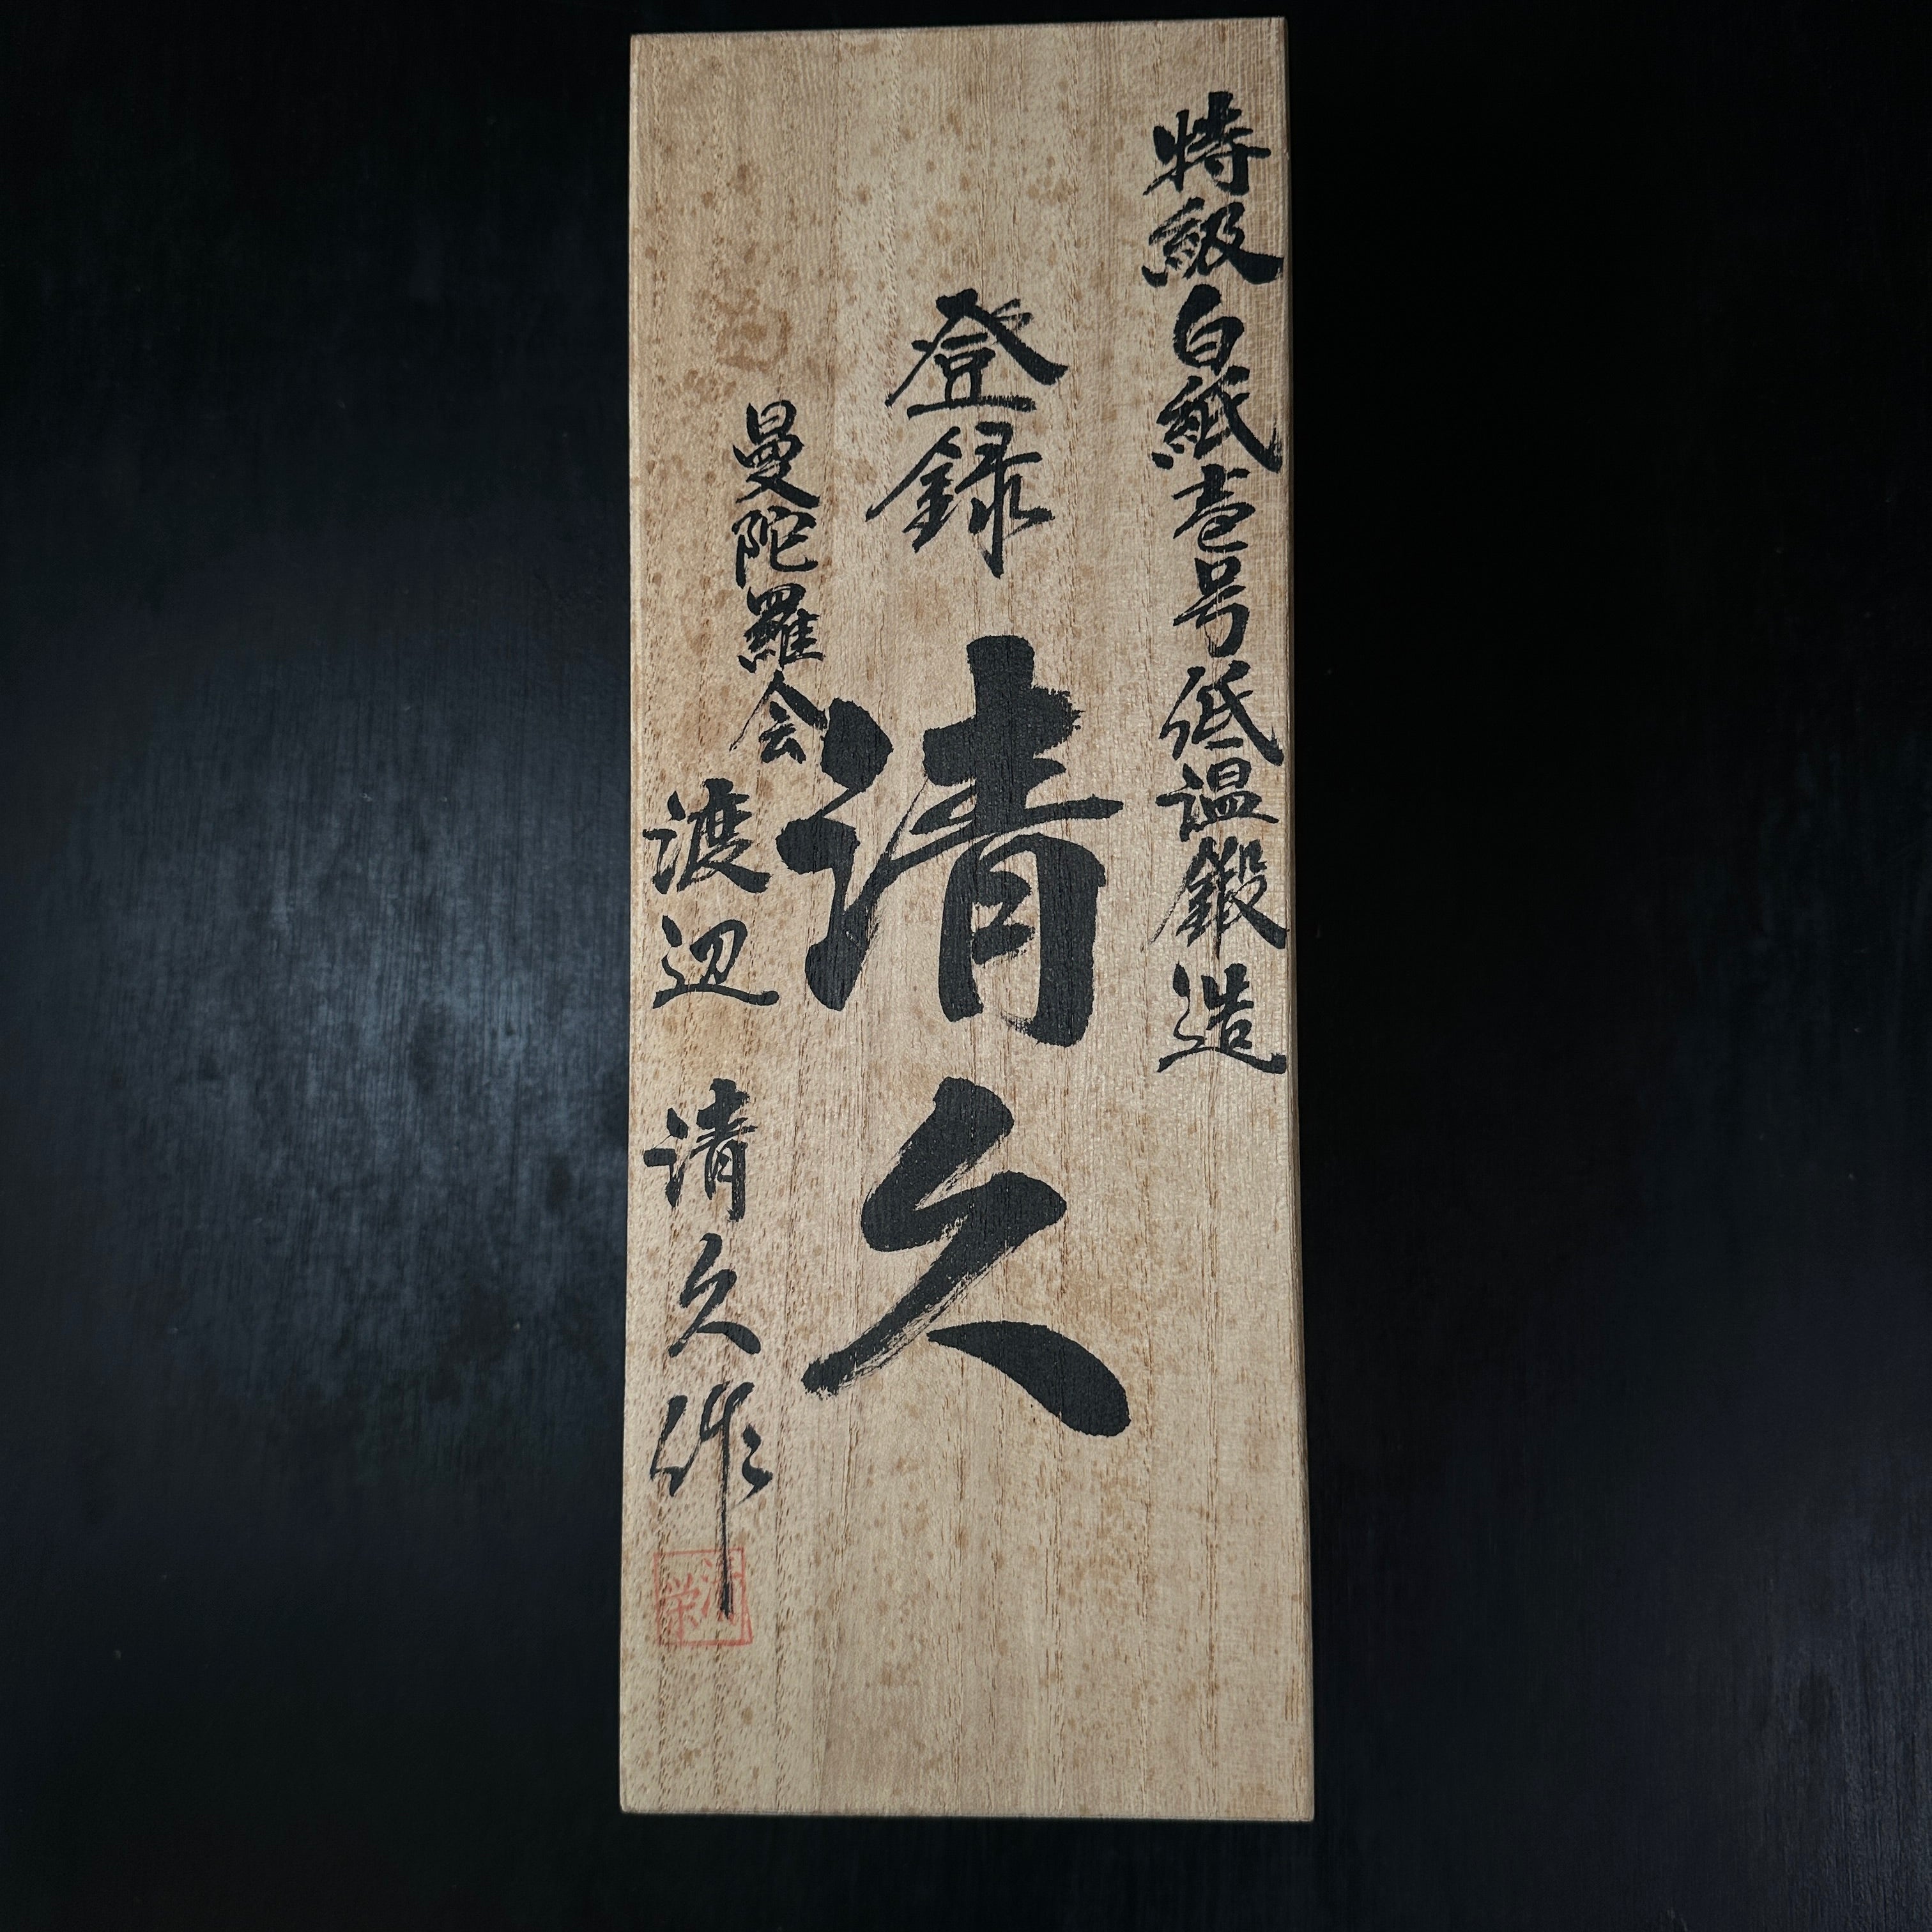 特級白紙壱号低温鍛造
登録
清久
曼陀羅会
渡辺 清久作
清栄